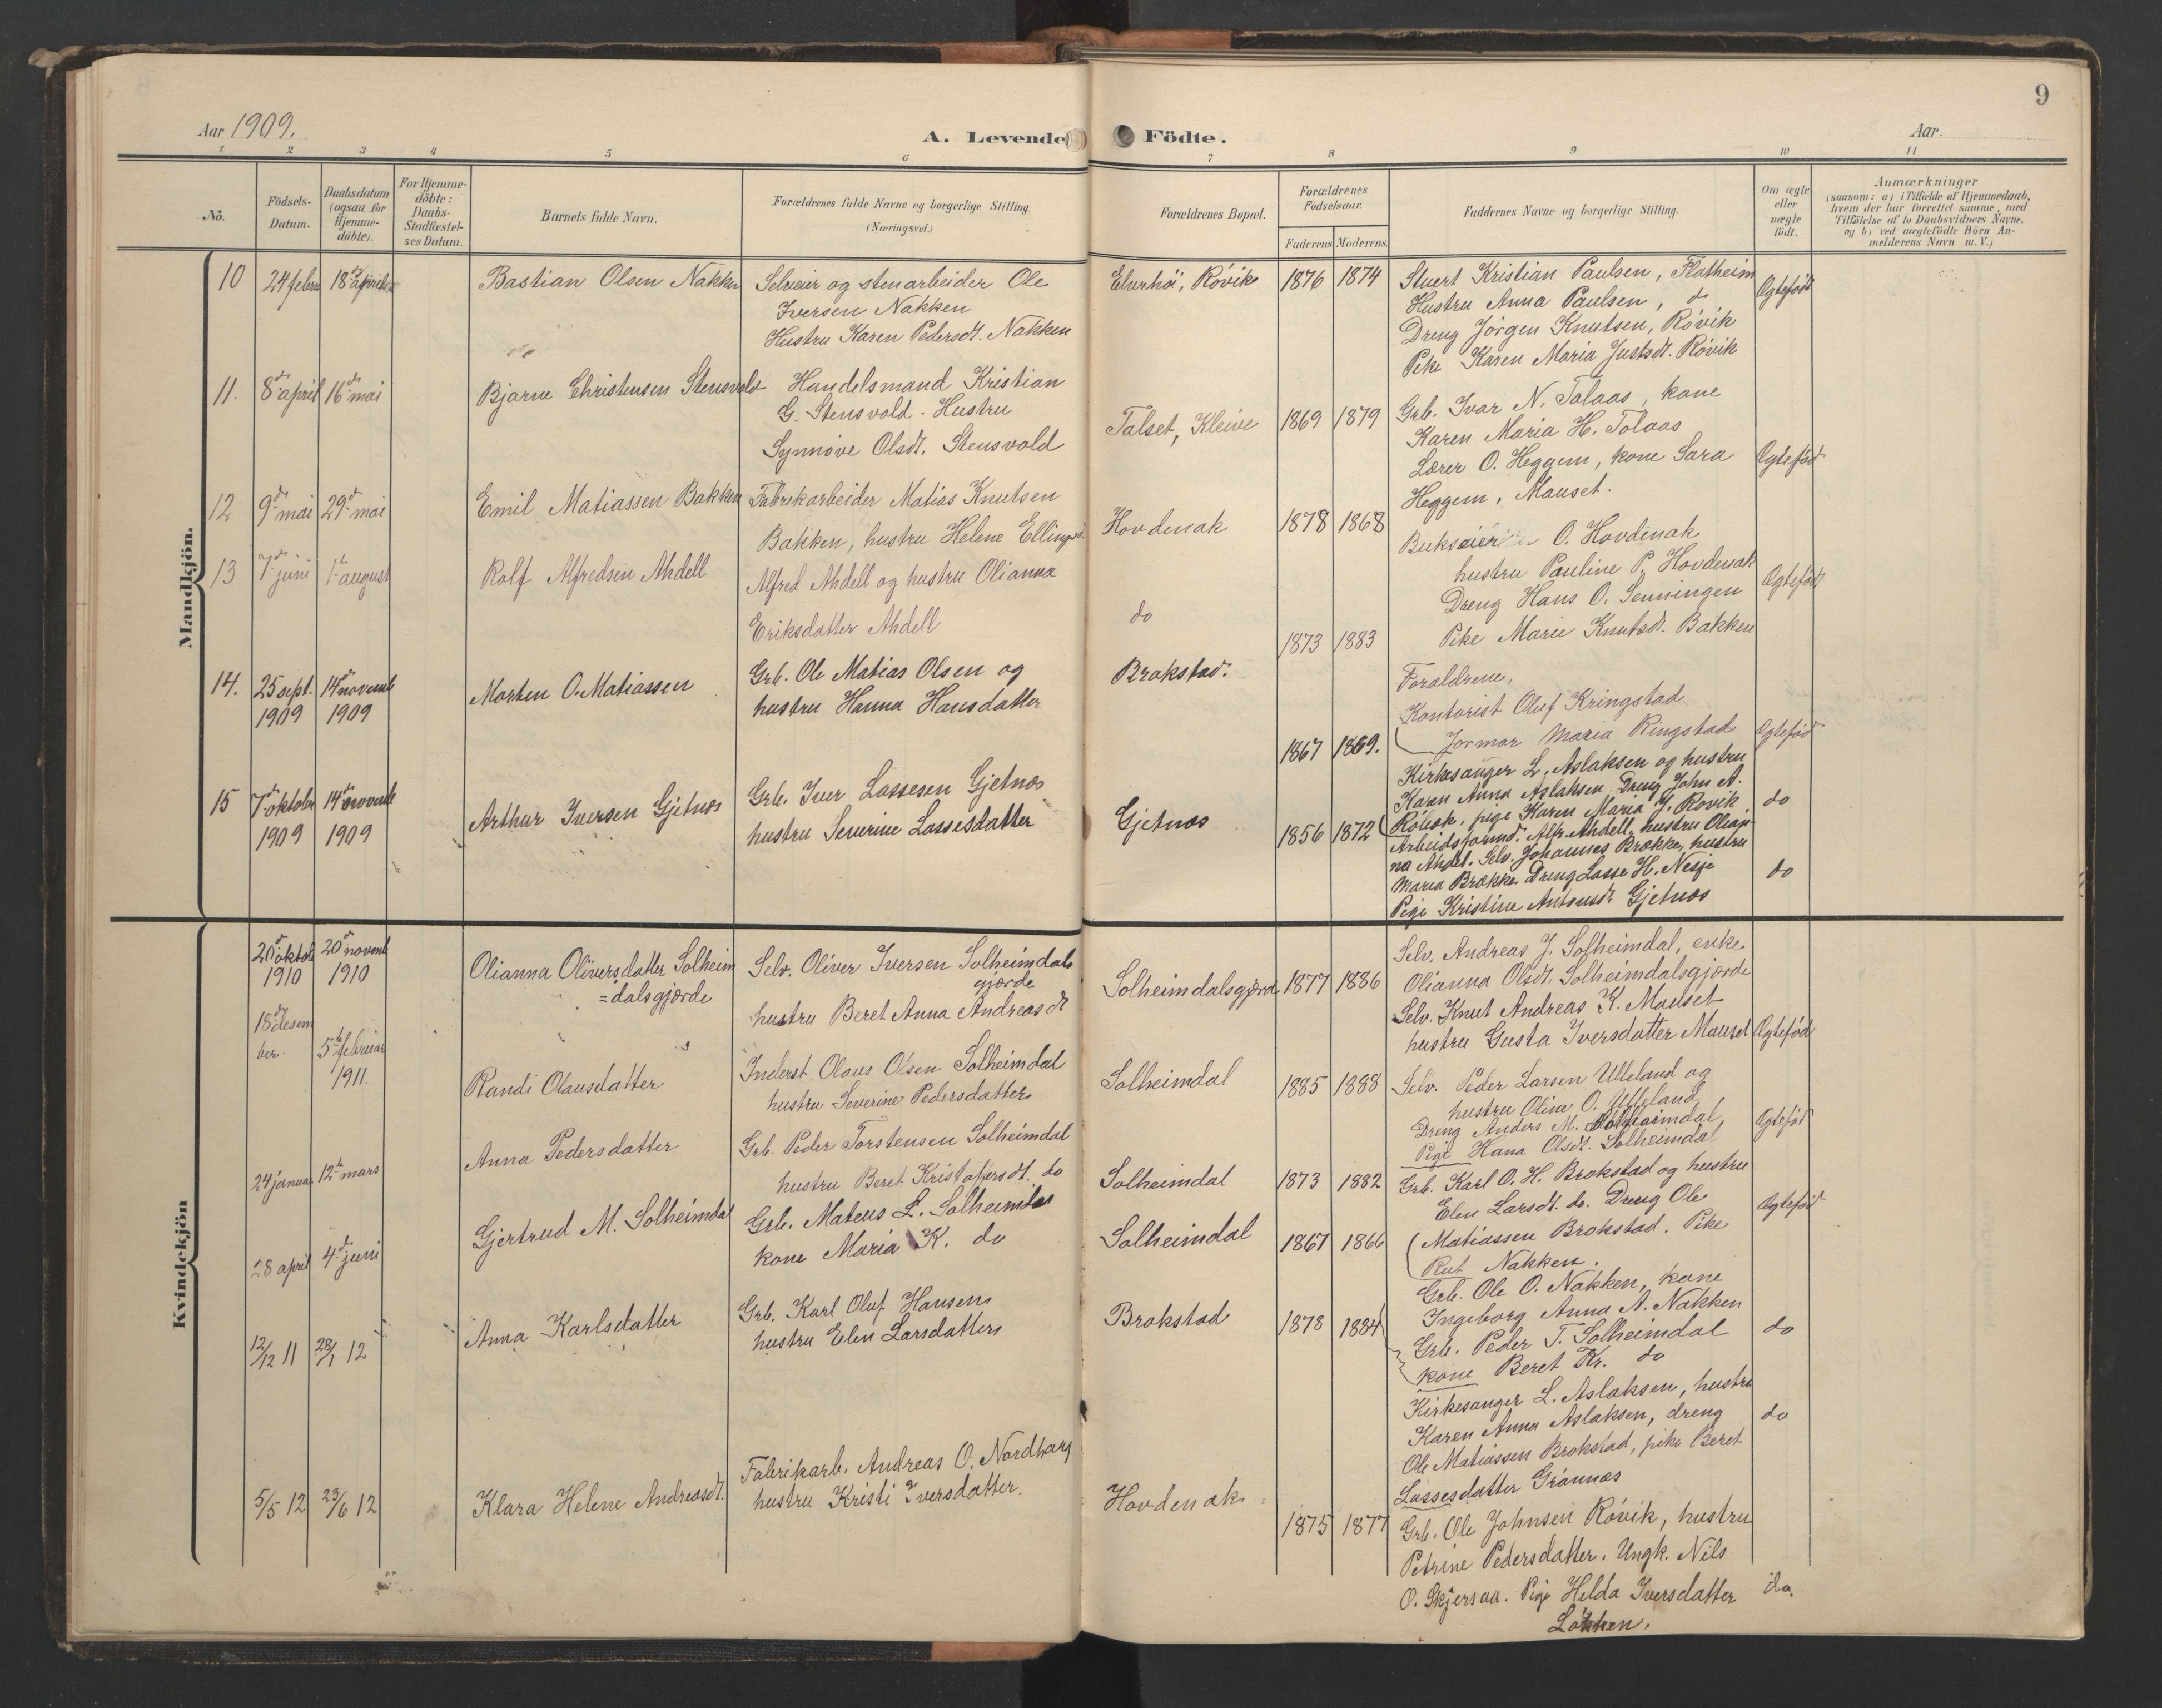 9
Aar 1909.
A. Levende
Födte.
Aar.
1 2 3 4 5 6 7 8 9 10 11
No.
Födsels-
Datum.
Daabsdatum
(ogsaa for
Hjemme-
döbte).
For Hjemme-
döbte:
Daabs-
Stadfæstel-
ses Datum.
Barnets fulde Navn.
Forældrenes fulde Navne og borgerlige Stilling
(Næringsvei.)
Forældrenes Bopæl.
Forældrenes
Födselsaar.
Faderens Moderens
Faddernes Navne og borgerlige Stilling.
Om ægte
eller
uægte
födt.
Anmærkninger
(saasom: a) i Tilfælde af Hjemmedaab,
hvem der har forrettet samme, med
Tilföielse af to Daabsvidners Navne.
og b) ved uægtefödte Börn An-
melderens Navn m. V.)
Mandkjön.
10 24 febru 18d april Bastian Olsen Nakken
Selveier og stenarbeider Ole
Iversen Nakken
Hustru Karen Pedersdt. Nakken
Elverhöi, Rövik 1876 1874
Stuert Kristian Paulsen, Flatheim
Hustru Anna Paulsen, do
Dreng Jörgen Knutsen, Rövik
Pike Karen Maria Justsdt. Rövik
Ægtefödt
11. 8d april 16d mai Bjarne Christensen Stensvold
Handelsmand Kristian
G. Stensvold. Hustru
Synnöve Olsdt. Stensvold
Talset, Kleive 1869 1879
Grb. Ivar N. Tolaas, kone
Karen Maria H. Tolaas
Lærer O. Heggem, kone Sara
Heggem, Mauset.
Ægtefød
12 9d mai 29d mai Emil Matiassen Bakken
Fabrikarbeider Matias Knutsen
Bakken, hustru Helene Ellingsd.
Hovdenak 1878 1868
O. Hovdenak
hustru Pauline P. Hovdenak
Dreng Hans O. Senningen
Pike Marie Knutsdt. Bakken
Ægtefödt
13 7d juni 1t august Rolf Alfredsen Ahdell
Alfred Ahdell og hustru Olianna
Eriksdatter Ahdell
do
1873 1883
Forældrene,
Kontorist Oluf Kringstad
Jormor Maria Ringstad
Ægtefød
14. 25 sept. 14d novemb
1909 1909
Morten O. Matiassen
Grb. Ole Matias Olsen og
hustru Hanna Hansdatter
Brokstad.
1867 1869.
Kirkesanger L. Aslaksen og hustru
Karen Anna Aslaksen, Dreng John A.
Röbek, pige Karen Maria J. Rövik
do
15 7d oktober 14d novemb
1909 1909
Arthur Iversen Gjetnæs
Grb. Iver Lassesen Gjetnæs
hustru Severine Lassesdatter
Gjetnæs 1856 1872
Arbeidsformd. Alfr. Ahdell, hustru Olian-
na Ahdel. Selv. Johannes Brække, hustru
Maria Brække. Dreng Lasse H. Nesje
Pige Kristine Antonsdt. Gjetnæs
do
Kvindekjön
20d oktob 20d novemb
1910 1910
Olianna Oliversdatter Solheim
=dalsgjærde
Selv. Oliver Iversen Solheimdals
gjærde
hustru Beret Anna Andreasdt
Solheimdalsgjærd 1877 1886
Selv. Andreas J. Solheimdal, enke
Olianna Olsdt. Solheimdalsgjærde
Selv. Knut Andreas K. Mauset
hustru Gusta Iversdatter Mauset
Ægtefød
18d desem
ber.
5te februar
1911.
Randi Olausdatter
Inderst Olaus Olsen Solheimdal
hustru Severine Pedersdatter
Solheimdal 1885 1888
Selv. Peder Larsen Ulleland og
hustru Oline O. Ulleland
Dreng Anders M. Solheimdal
Pige Hana Olsdt. Solheimdal
Ægtefød
24 januar 12te mars
Anna Pedersdatter
Grb. Peder Torstensen Solheimdal
hustru Beret Kristofersdt. do
Solheimdal 1873 1882
Grb. Karl O. H. Brokstad og hustru
Elen Larsdt. do. Dreng Ole
Matiassen Brokstad. Pike
Rut Nakken.
Ægtefød
28 april 4d juni
Gjertrud M. Solheimdal
Grb. Mateus L. Solheimdal
kone Maria K. do
Solheimdal 1867 1866
Grb. Ole O. Nakken, kone
Ingeborg Anna A. Nakken
Grb. Peder T. Solheimdal
kone Beret Kr. do
do
12/12 11 28/1 12
Anna Karlsdatter
Grb. Karl Oluf Hansen
hustru Elen Larsdatter
Brokstad 1878 1884
Kirkesanger L. Aslaksen, hustru
Karen Anna Aslaksen, dreng
Ole Matiassen Brokstad, pike Beret
Lassesdatter Grannæs
do
5/5 12 23/6 12
Klara Helene Andreasdt.
Fabrikarb. Andreas O. Nordharg
hustru Kristi Iversdatter.
Hovdenak 1875 1877
Grb. Ole Johnsen Rövik, hustru
Petrine Pedersdatter. Ungk. Nils
O. Skjersaa. Pige Helda Iversdatter
Løkken.
do.